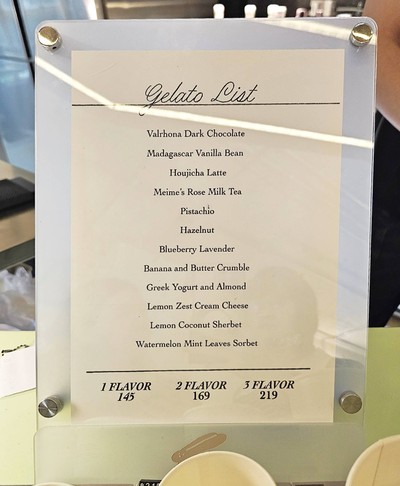 Gelato List
Valrhona Dark Chocolate
Madagascar Vanilla Bean
Houjicha Latte
Meime's Rose Milk Tea
Pistachio
Hazelnut
Blueberry Lavender
Banana and Butter Crumble
Greek Yogurt and Almond
Lemon Zest Cream Cheese
Lemon Coconut Sherbet
Watermelon Mint Leaves Sorbet
1 FLAVOR 2 FLAVOR 3 FLAVOR
145 169 219